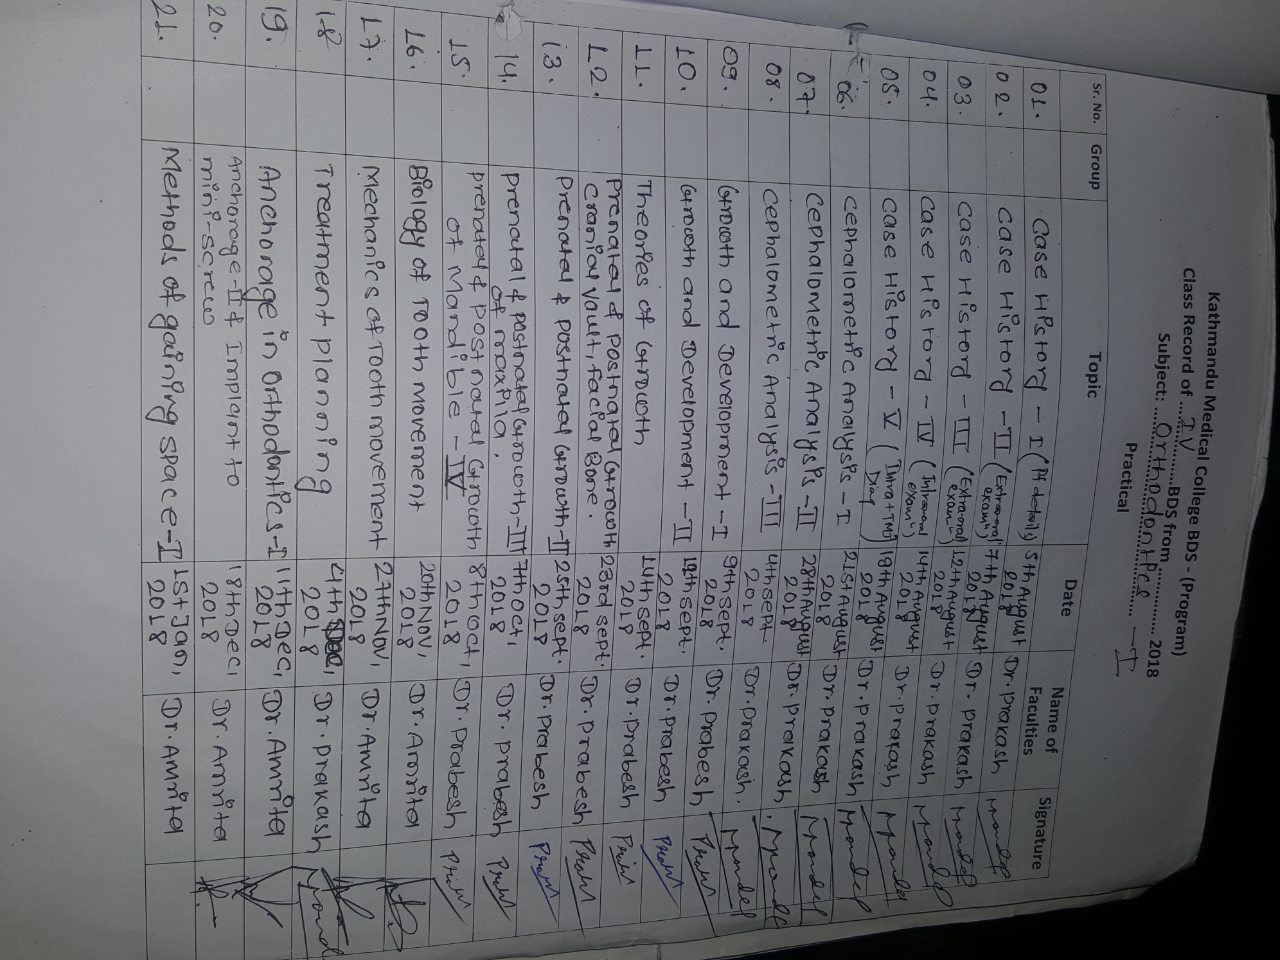 Kathmandu Medical College BDS - (Program)
Class Record of ....IV..........BDS from .................. 2018
Subject: .....Orthodontics................
Practical - I
Sr. No. Group Topic Date Name of Faculties Signature
01. Case History - I (Pt details) 5th August 2018 Dr. Prakash
02. Case History - II (Extraoral examn) 7th August 2018 Dr. Prakash
03. Case History - III (Extraoral examn) 12th August 2018 Dr. Prakash
04. Case History - IV (Intraoral examn) 14th August 2018 Dr. Prakash
05. Case History - V (Intra + TMJ 19th August 2018 Dr. Prakash
06. Cephalometric Analysis - I 21st August 2018 Dr. Prakash
07. Cephalometric Analysis - II 28th August 2018 Dr. Prakash
08. Cephalometric Analysis - III 4th Sept. 2018 Dr. Prakash.
09. Growth and Development - I 9th Sept. 2018 Dr. Prabesh
10. Growth and Development - II Sept. 2018 Dr. Prabesh
11. Theories of Growth 14th Sept. 2018 Dr. Prabesh
12. Prenatal & Postnatal Growth Cranial Vault, Facial Bone. 23rd Sept. 2018 Dr. Prabesh
13. Prenatal & Postnatal Growth - II 25th Sept. 2018 Dr. Prabesh
14. Prenatal & Postnatal Growth - III of maxilla. 7th Oct, 2018 Dr. Prabesh
15. Prenatal & Postnatal Growth of Mandible - IV 8th Oct, 2018 Dr. Prabesh
16. Biology of Tooth movement 20th Nov, 2018 Dr. Amrita
17. Mechanics of Tooth movement 27th Nov, 2018 Dr. Amrita
18. Treatment planning 4th Dec, 2018 Dr. Prakash
19. Anchorage in Orthodontics - I 11th Dec, 2018 Dr. Amrita
20. Anchorage - II & Implant to mini-screw 18th Dec, 2018 Dr. Amrita
21. Methods of gaining space - I 1st Jan, 2018 Dr. Amrita